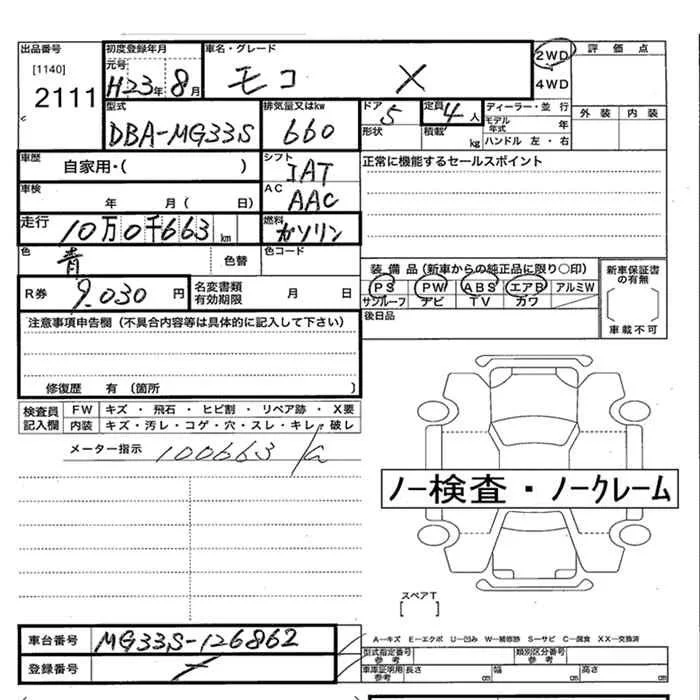 出品番号 初度登録年月 車名・グレード 2WD 評価点
[1140] 元号
2111 H23年 8月 モコ X 4WD
型式 排気量又はkw ドア 定員 ディーラー・並行 外装 内装
DBA-MG33S 660 5 4人 モデル年式 年
形状 積載 kg ハンドル 左・右
車歴 自家用・( ) シフト IAT 正常に機能するセールスポイント
車検 年 月( 日) AC AAC
走行 10万0千663km 燃料 ガソリン
色 青 色替 色コード
装備品(新車からの純正品に限り〇印) 新車保証書の有無
R券 9.030円 名変書類有効期限 月 日 PS PW ABS エアB アルミW
サンルーフ ナビ TV カワ
注意事項申告欄(不具合内容等は具体的に記入して下さい) 後日品 車載不可
修復歴 有(箇所 )
検査員記入欄 FW キズ・飛石・ヒビ割・リペア跡・X要
内装 キズ・汚レ・コゲ・穴・スレ・キレ・破レ
メーター指示 100663
ノー検査・ノークレーム
スペアT
[ ]
車台番号 MG33S-126862 A-キズ E-エクボ U-凹み W-補修跡 S-サビ C-腐食 XX-交換済
型式指定番号参考 類別区分番号参考
登録番号 車庫証明用参考 長さ cm 幅 cm 高さ cm